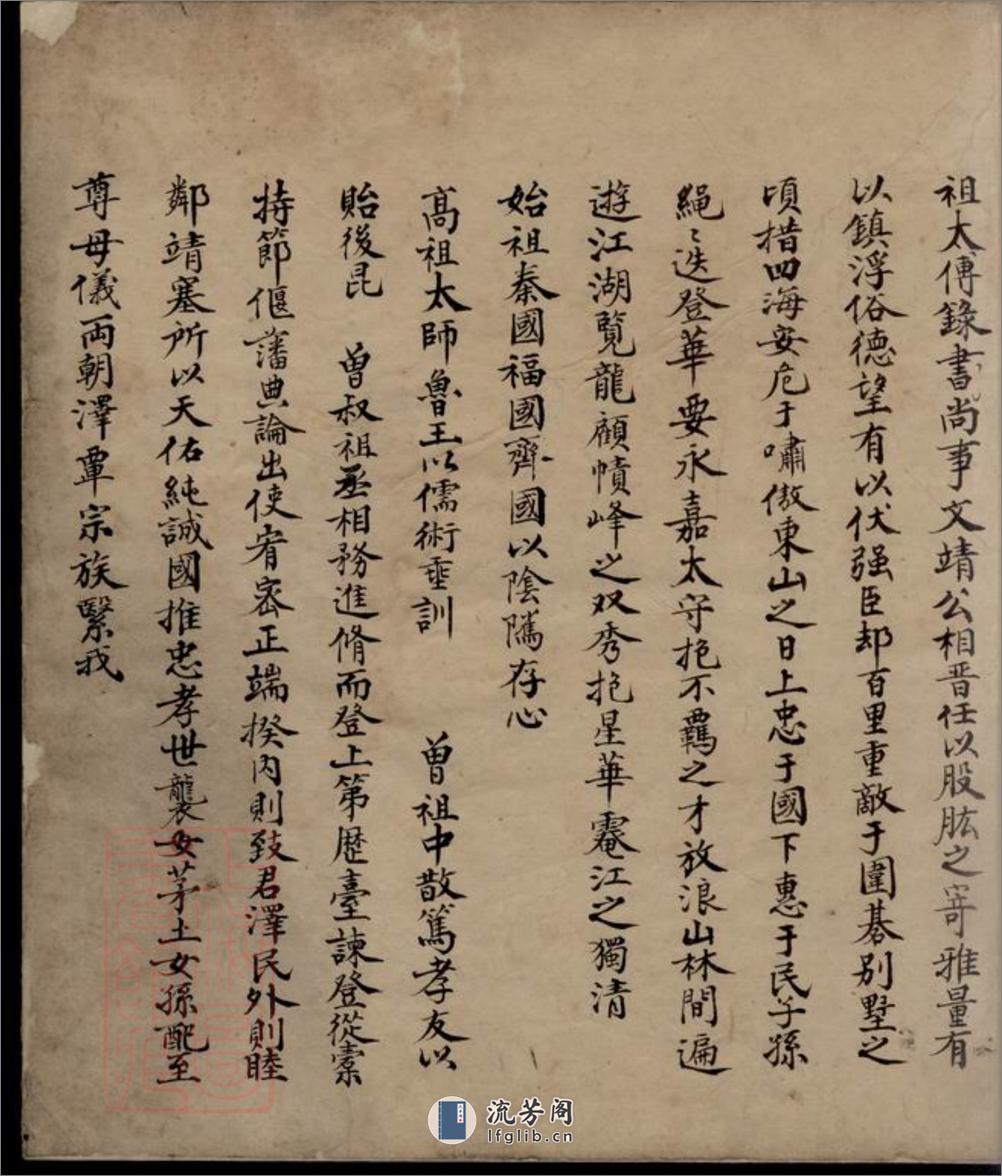 祖太傅錄書尚事文靖公相晋任以股肱之寄雅量有
以鎮浮俗德望有以伏强臣却百里重敵于圍碁別墅之
頃措四海安危于嘯傲東山之日上忠于國下惠于民子孫
繩〻迭登華要永嘉太守抱不羈之才放浪山林間遍
遊江湖覧龍顧幘峰之双秀抱星華霞江之獨清
始祖秦國福國齊國以陰隲存心
髙祖太師魯王以儒術垂訓 曽祖中散篤孝友以
貽後昆 曽叔祖丞相務進脩而登上第歷臺諫登從橐
持節偃藩典論出使宥宻正端揆内則致君澤民外則睦
鄰靖塞所以天佑純誠國推忠孝世襲安茅土女孫配至
尊母儀両朝澤覃宗族緊我
流芳阁
lfglib.cn